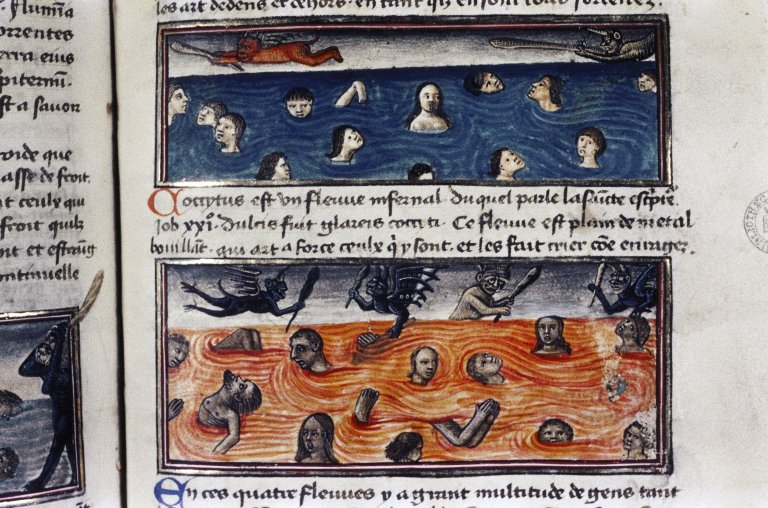 plumīa
orrentes
erra eius
pitermī.
st a savoir
roide que
asse de froit.
ut ceulx qui
froit quilz
ont et estraug
ontinuelle
les art dedens et dehors. en tant qu en sont tous
Coccytus est un fleuve infernal. du quel parle la saincte escpture
Iob xxi. Dulcis fuit glareis cociti. Ce fleuve est plain de metal
bouillāt. qui art a force ceulx q̄ y sont. et les fait crier cōe enragez.
En ces quatre fleuves y a grant multitude de gens tant